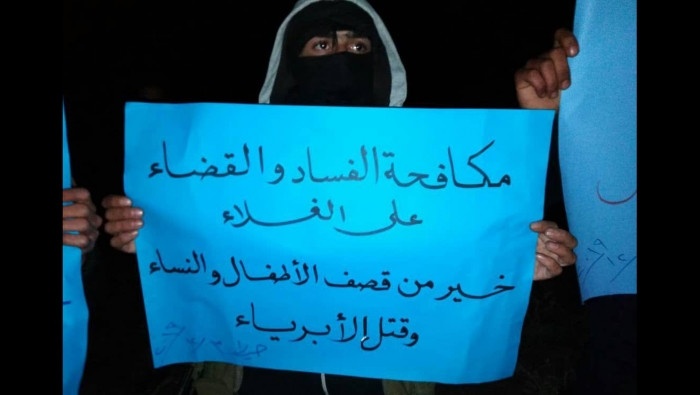 مكافحة الفساد والقضاء
على الغلاء
خير من قصف الأطفال والنساء
وقتل الأبرياء